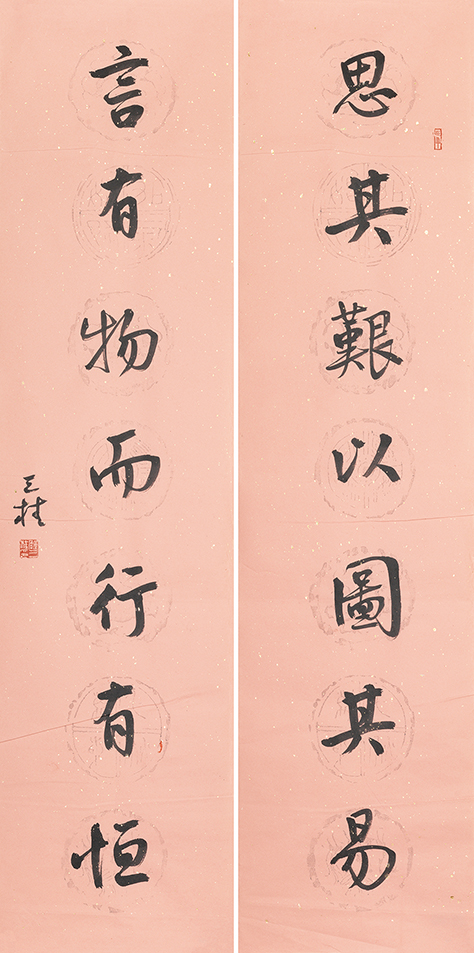 思其艱以圖其易
言有物而行有恒
三桂